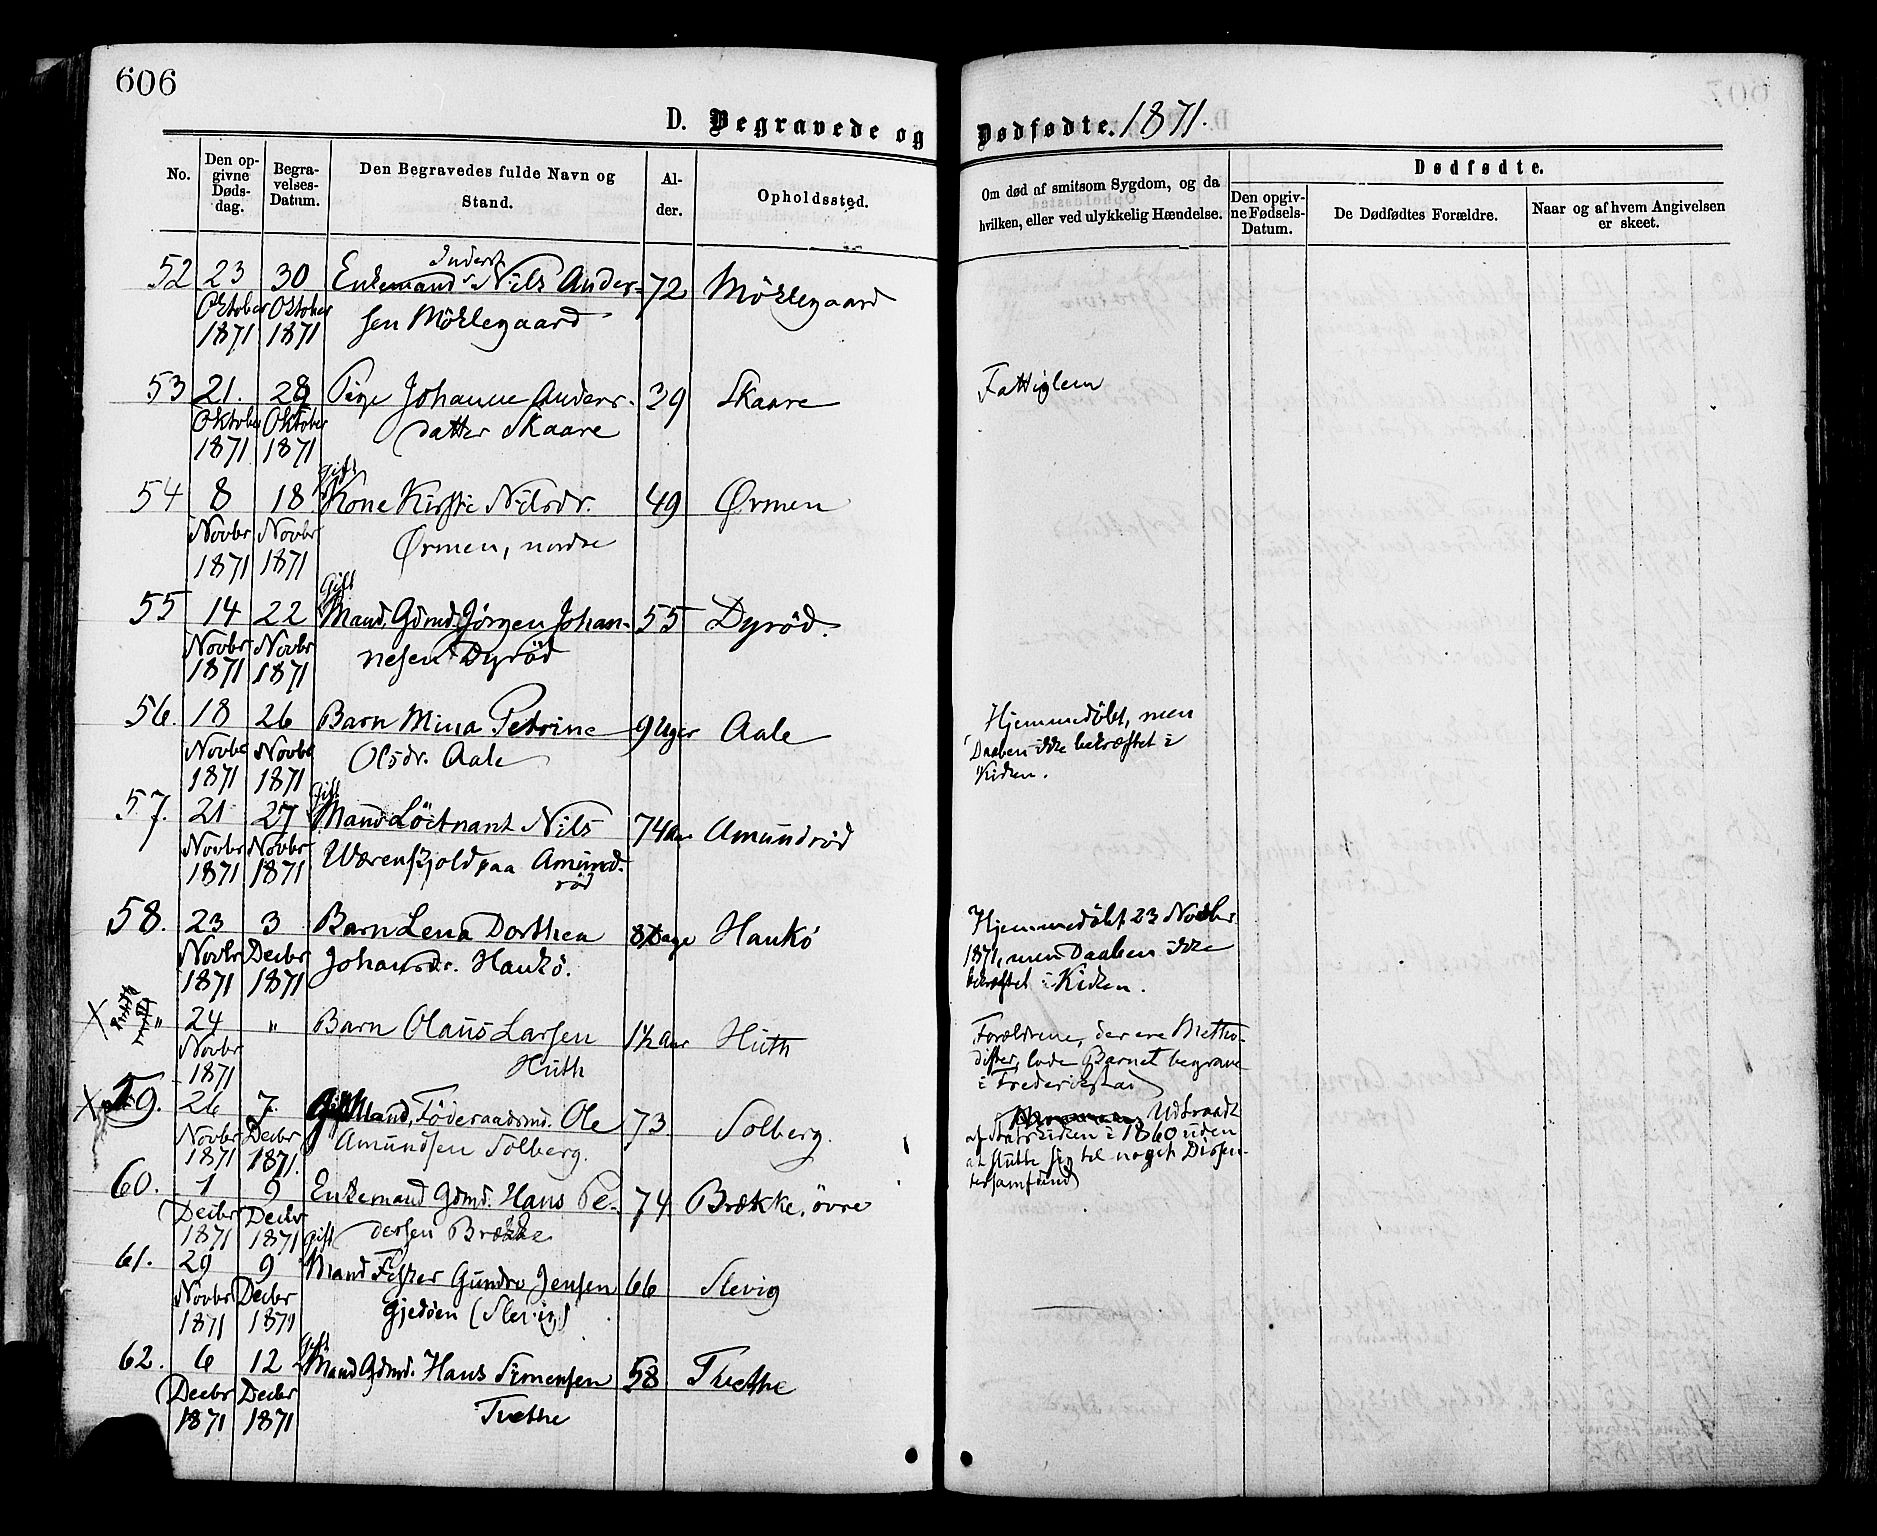 606
D. Begravede og Dødfødte. 1871.
No.
Den opgivne Dødsdag.
Begravelses-Datum.
Den Begravedes fulde Navn og Stand.
Alder.
Opholdssted.
Om død af smitsom Sygdom, og da hvilken, eller ved ulykkelig Hændelse.
Dødfødte.
Den opgivne Fødsels-Datum.
De Dødfødtes Forældre.
Naar og af hvem Angivelsen er skeet.
Inderst
52 23 30 Enkemand Nils Ander- 72 Möklegaard
Oktober Oktober sen Möklegaard
1871 1871
53 21. 28 Pige Johanne Anders- 39 Skaare Fattiglem
Oktober Oktober datter Skaare
1871 1871
gift
54 8 18 Kone Kirsti Nilsdr. 49 Ørmen
Novbr Novbr Ørmen, nordre
1871 1871
Gift
55 14 22 Mand. Gdmd. Jørgen Johan- 55 Dyröd.
Novbr Novbr nesen Dyröd
1871 1871
56. 18 26 Barn Mina Petrine 9 Uger Aale Hjemmedøbt, men
Novbr Novbr Olsdr. Aale Daaben ikke bekræftet i
1871 1871 Kirken.
Gift
57. 21 27 Mand Löitnant Nils 74 Aar Amundröd
Novbr Novbr Wærenskjold paa Amund-
1871 1871 röd
58. 23 3 Barn Lena Dorthea Dage Hankö Hjemmedøbt 23 Novbr
Novbr Decbr Johansdr. Hankö. 1871, men Daaben ikke
1871 1871 bekræftet i Kirken.
X " 24 " Barn Olaus Larsen 1½ Aar Huth Forældrene, der ere Metho-
Novbr Huth dister, lode Barnet begrave
1871 i Frederikstad
X 59. 26 7. Gift Mand, Föderaadsmd. Ole 73 Solberg. Udtraadt
Novbr Decbr Amundsen Solberg. af Statskirken i 1860 uden
1871 1871. at slutte sig til noget Dissen-
tersamfund
60. 1 9 Enkemand Gdmd. Hans Pe- 74 Brække, övre
Decbr Decbr dersen Brække
1871 1871
gift
61. 29 9 Mand Fisker Gundro Jensen 66 Slevig
Novbr Decbr Gjedöen (Slevig)
1871 1871
gift
62. 6 12 Mand Gdmd. Hans Simensen 58 Thvethe
Decbr Decbr Tvethe
1871 1871